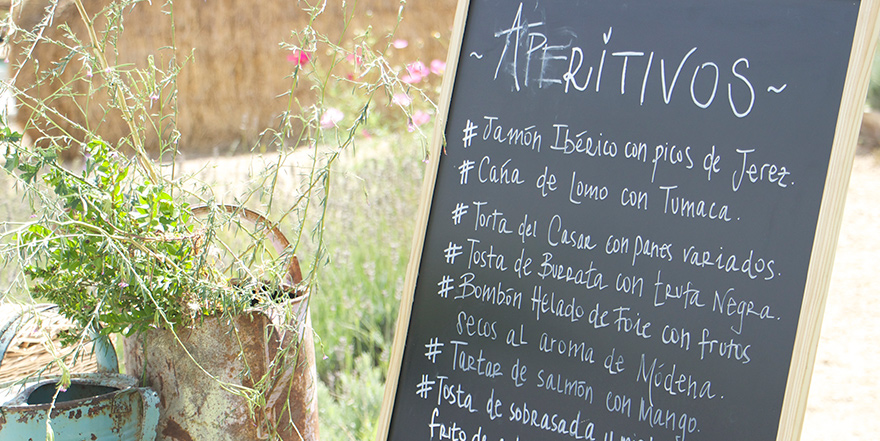 ~ APERITIVOS ~
# Jamón Ibérico con picos de Jerez.
# Caña de Lomo con Tumaca.
# Torta del Casar con panes variados.
# Tosta de Burrata con Truta Negra.
# Bombón Helado de Foie con frutos
secos al aroma de Módena.
# Tartar de salmón con Mango.
# Tosta de sobrasada
frito de